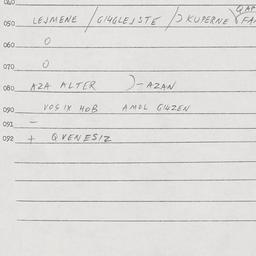 040
050 LEJMENE / GI4GLEJSTE / ) KUPERNE
060 O
070 O
080 AZA ALTER )-AZAN
090 VOSIX HOB AMOL GI4ZEN
091 —
092 + QVENESIZ